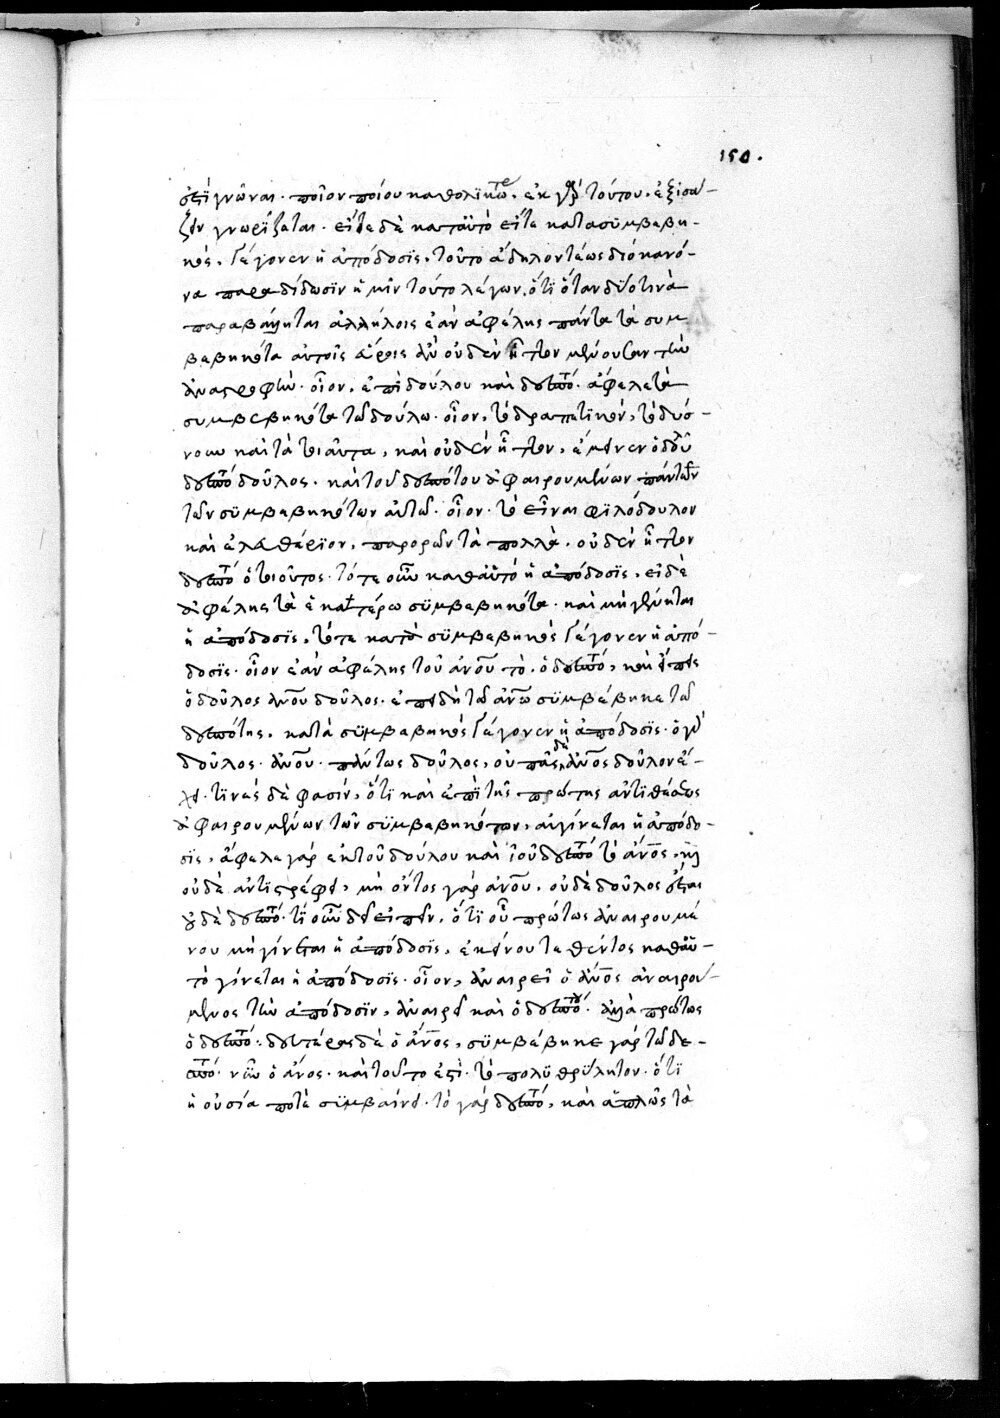 150.
ἐστὶ γνῶναι· ποῖον ποίου καθολικώτε· ἐκ γὰρ τούτου. ἐξισά-
ζειν γνωρίζεται· εἴτε δὲ καταϋτὸ εἴτε κατασϋμβεβη-
κὸς. γέγονεν ἡ ἀπόδοσϊς. τοῦτο ἄδηλον τέως διὸ κανό-
να παραδίδωσϊν ἡμῖν τοῦτο λέγων, ὅτϊ ὅταν δύο τινὰ
παραβάληται ἀλλήλοις ἐὰν ἀφέλης πάντα τὰ συμ
βεβηκότα αὐτοῖς εὕροις ἂν οὐδὲν ἧττον μένουσαν τὴν
ἀναστροφὴν· οἷον. ἐπὶ δούλου καὶ δεσπο· ἄφελε τὰ
συμβεβηκότα τῶ δούλω· οἷον, τὸ δραπετϊκὸν, τὸ δύσ-
νουν καὶ τὰ τοιαῦτα, καὶ οὐδὲν ἧττον, ἔμεινεν ὁ δοῦ
δεσπο δοῦλος. καὶ τοῦ δεσπότου ἀφαιρουμένων πάντων
τῶν σϋμβεβηκότων αὐτῶ· οἷον· τὸ εἶναι φϊλόδουλον
καὶ ἐλευθέρϊον, παρορῶν τὰ πολλὰ· οὐδὲν ἧττον
δεσπο ὁ τοιοῦτος· τότε οὖν καθαὑτὸ ἡ ἀπόδοσϊς, εἰ δὲ
ἀφέλης τὰ ἑκατέρω σϋμβεβηκότα· καὶ μὴ μένηται
ἡ ἀπόδοσϊς, τότε κατὰ σϋμβεβηκὸς γέγονεν ἡ ἀπό-
δοσϊς· οἷον ἐὰν ἀφέλης τοῦ ἀνου τὸ· ὁ δεσπο, καὶ εἴπης
ὁ δοῦλος ἀνου δοῦλος· ἐπειδὴ τῶ ἀνω σϋμβέβηκε τῶ
δεσπότης, κατὰ σϋμβεβηκὸς γέγονεν ἡ ἀπόδοσϊς· ὁ γὰρ
δοῦλος· ἀνου· πάντως δοῦλος, οὐ πᾶς δὲ ἀνος δοῦλον ἔ-
χει· τϊνὲς δὲ φασὶν, ὅτϊ καὶ ἐπὶ τῆς πρώτης ἀντιθέσεως
ἀφαιρουμένων τῶν σϋμβεβηκότων, ἀναιρεῖται ἡ ἀπόδο-
σϊς, ἄφελε γὰρ ἐκ τοῦ δούλου καὶ τοῦ δεσπο τὸ ἀνος, καὶ
οὐδὲ ἀντιστρέφει, μὴ ὄντος γὰρ ἀνου. οὐδὲ δοῦλος ἔσται
οὐδὲ δεσπο· τί οὖν δεῖ εἰπεῖν, ὅτϊ οὗ πρώτως ἀναιρουμέ
νου μὴ γίνεται ἡ ἀπόδοσϊς, ἐκείνου τεθέντος καθαὑ-
τὸ γίνεται ἡ ἀπόδοσϊς· οἷον, ἀναιρεῖ ὁ ἀνος ἀναιρού-
μενος τὴν ἀπόδοσϊν, ἀναιρεῖ καὶ ὁ δεσπο· ἀλλὰ πρώτως
ὁ δεσπο· δευτέρως δὲ ὁ ἀνος, σϋμβέβηκε γὰρ τῶ δε-
σπο· νῦν ὁ ἀνος· καὶ τοῦτο ἐστὶ· τὸ πολϋθρύλητον· ὅτϊ
ἡ οὐσία ποτὲ σϋμβαίνει· τὸ γὰρ δεσπο, καὶ ἁπλῶς τὰ